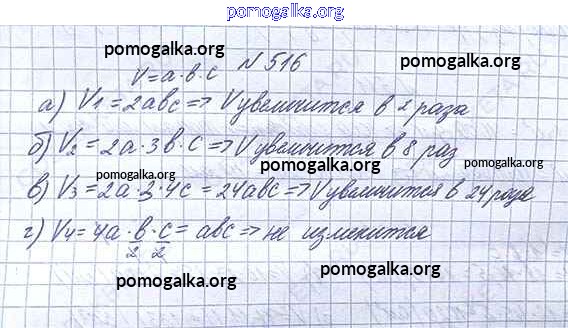 pomogalka.org
pomogalka.org pomogalka.org
V=a·b·c N516
а) V1=2abc=>V увеличится в 2 раза
pomogalka.org
б) V2=2a·3b·c=>V увеличится в 8 раз
pomogalka.org pomogalka.org
pomogalka.org
в) V3=2a·3·4c=24abc=>V увеличится в 24 раза
г) V4=4a·b/2·c/2=abc=>не изменится
pomogalka.org pomogalka.org